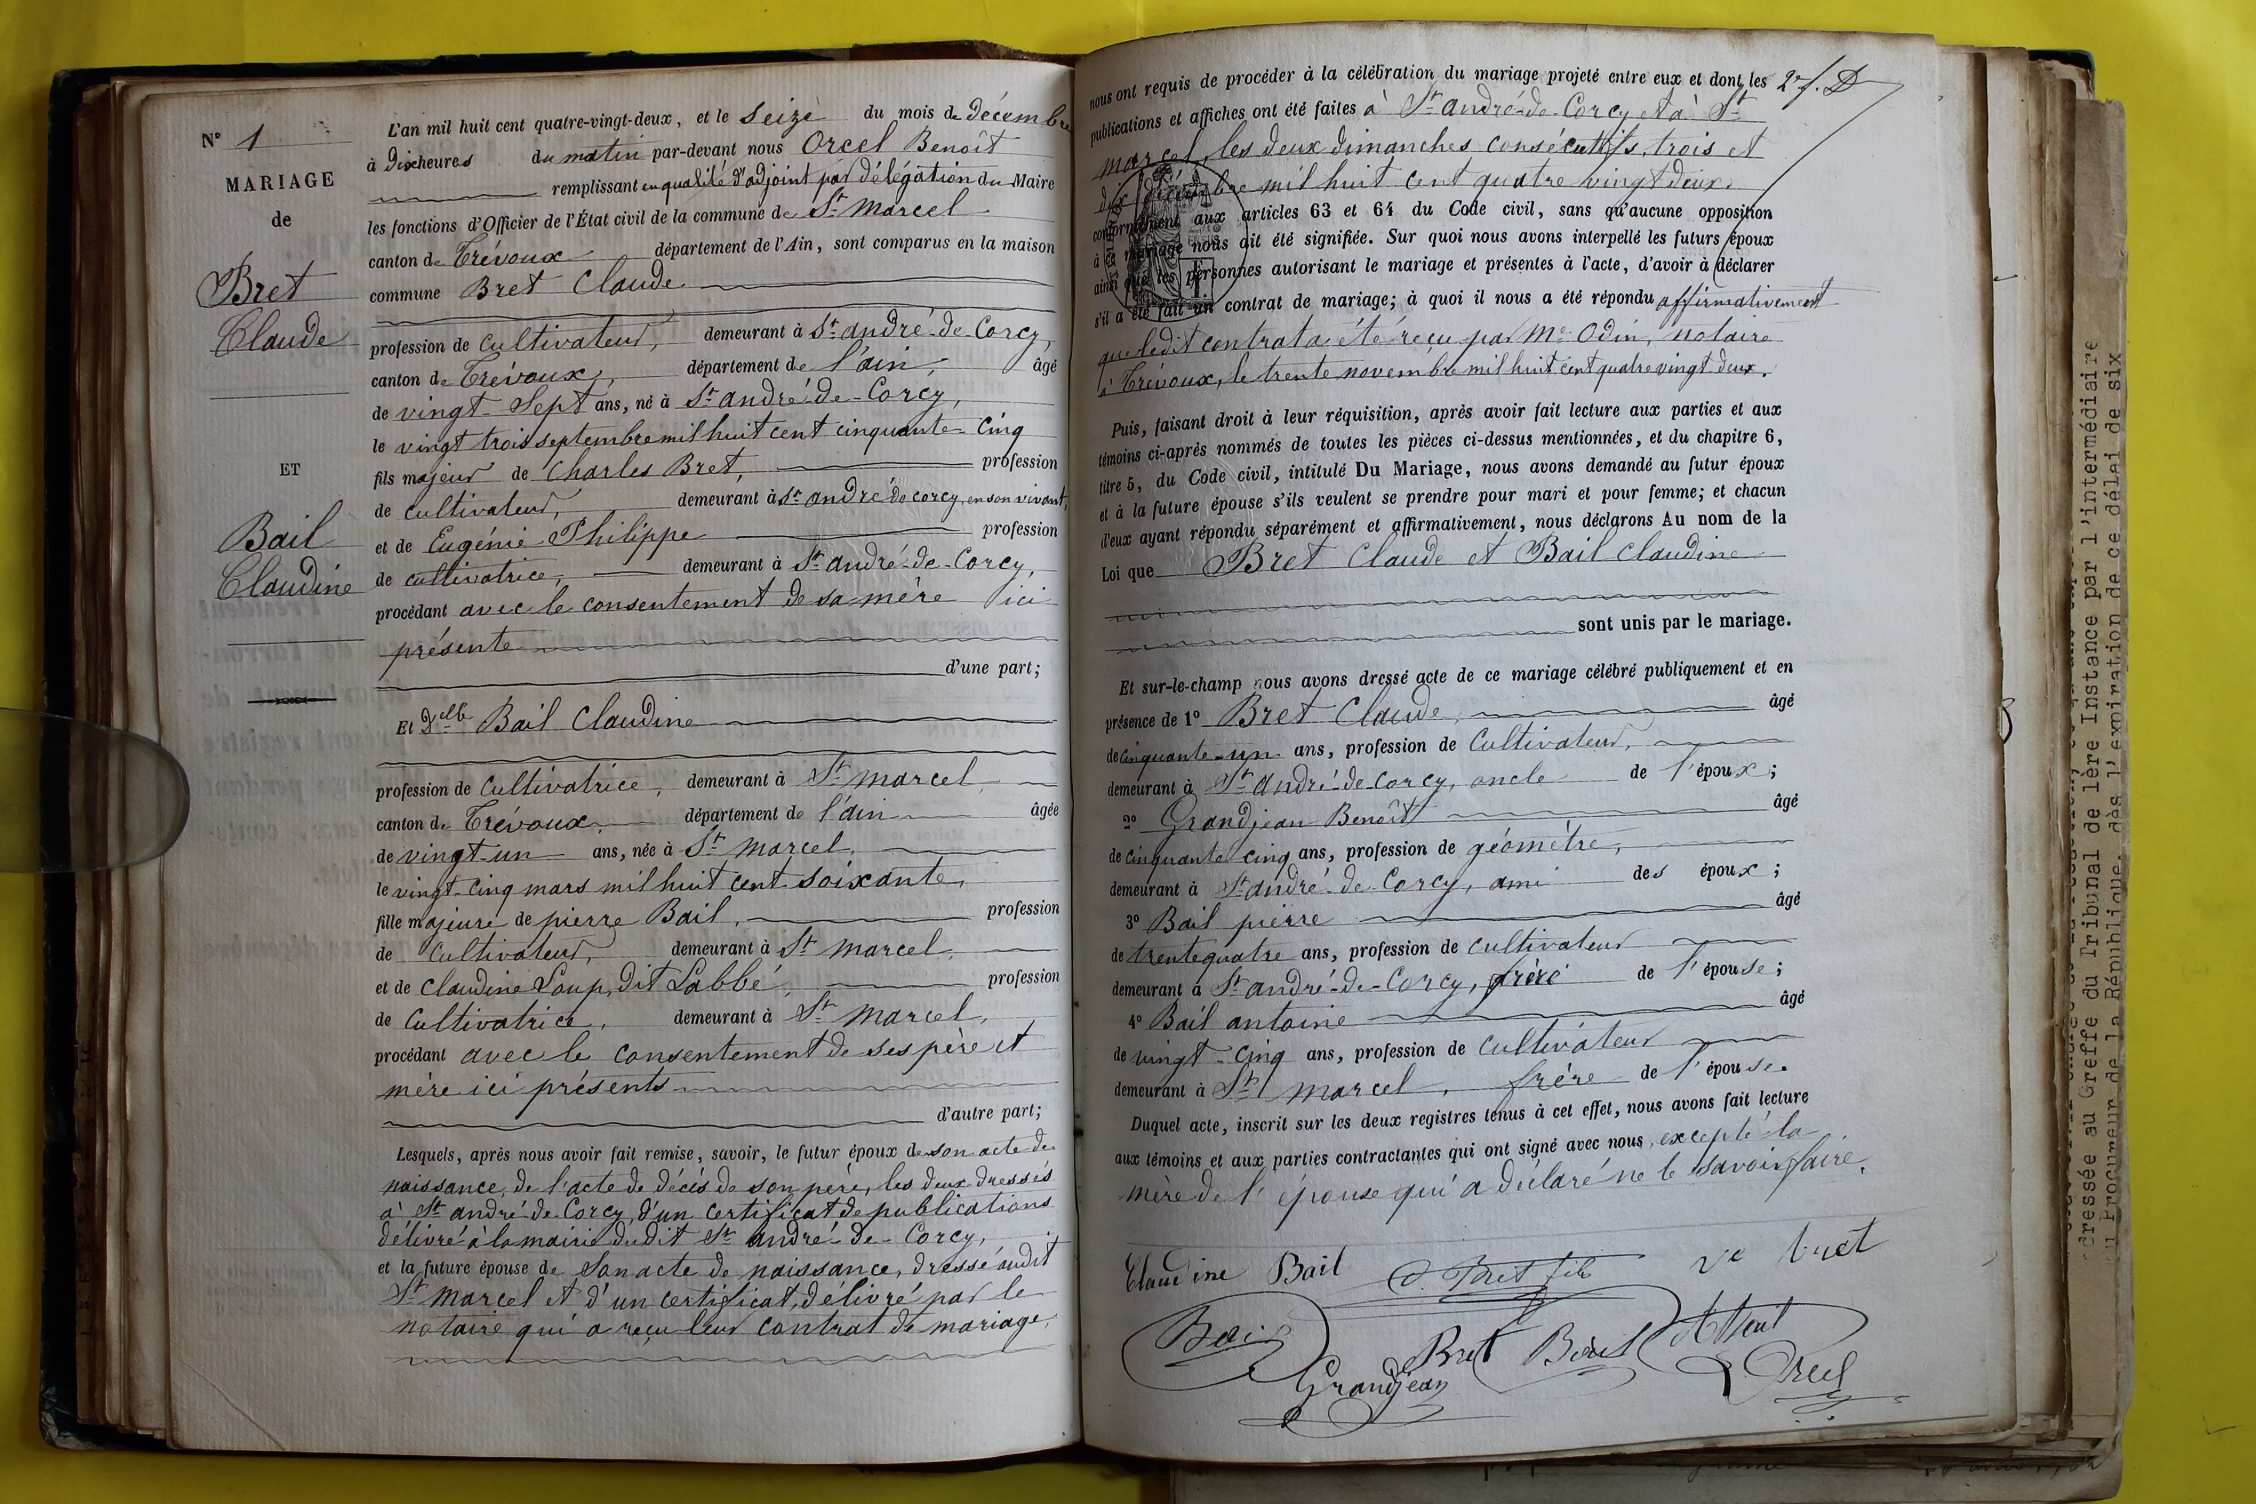 N° 1
MARIAGE
de
Bret
Claude
ET
Bail
Claudine
L'an mil huit cent quatre-vingt-deux, et le Seize du mois de décembre
à dix heures du matin par-devant nous Orcel Benoît
remplissant en qualité d'adjoint par délégation du Maire
les fonctions d'Officier de l'État civil de la commune de St Marcel
canton de Trévoux département de l'Ain, sont comparus en la maison
commune Bret Claude
profession de cultivateur, demeurant à St andré-de-Corcy,
canton de Trévoux, département de l'ain, âgé
de vingt-Sept ans, né à St andré-de-Corcy,
le vingt trois septembre mil huit cent cinquante-cinq
fils majeur de Charles Bret, profession
de cultivateur, demeurant à St andré de corcy, en son vivant,
et de Eugénie Philippe profession
de cultivatrice, demeurant à St andré-de-Corcy,
procédant avec le consentement de sa mère ici
présente
d'une part;
Et Delle Bail Claudine
profession de cultivatrice, demeurant à St Marcel
canton de Trévoux, département de l'ain âgée
de vingt-un ans, née à St Marcel,
le vingt-cinq mars mil huit cent soixante,
fille majeure de pierre Bail, profession
de cultivateur, demeurant à St Marcel,
et de Claudine Loup, dit Labbé, profession
de Cultivatrice, demeurant à St Marcel,
procédant avec le consentement de ses père et
mère ici présents
d'autre part;
Lesquels, après nous avoir fait remise, savoir, le futur époux de son acte de
naissance, de l'acte de décès de son père, les deux dressés
à St andré-de-Corcy, d'un certificat de publications
délivré à la mairie dudit St André-de-Corcy,
et la future épouse de Son acte de naissance, dressé audit
St Marcel et d'un certificat, délivré par le
notaire qui a reçu leur contrat de mariage,
nous ont requis de procéder à la célébration du mariage projeté entre eux et dont les
publications et affiches ont été faites à St andré-de-Corcy et à St
marcel, les deux dimanches consécutifs, trois et
dix décembre mil huit cent quatre vingt deux.
conformément aux articles 63 et 64 du Code civil, sans qu'aucune opposition
à ce mariage nous ait été signifiée. Sur quoi nous avons interpellé les futurs époux
ainsi que les personnes autorisant le mariage et présentes à l'acte, d'avoir à déclarer
s'il a été fait un contrat de mariage; à quoi il nous a été répondu affirmativement
que ledit contrat a été reçu par Me Odin, notaire
à Trévoux, le trente novembre mil huit cent quatre vingt deux.
Puis, faisant droit à leur réquisition, après avoir fait lecture aux parties et aux
témoins ci-après nommés de toutes les pièces ci-dessus mentionnées, et du chapitre 6,
titre 5, du Code civil, intitulé Du Mariage, nous avons demandé au futur époux
et à la future épouse s'ils veulent se prendre pour mari et pour femme; et chacun
d'eux ayant répondu séparément et affirmativement, nous déclarons Au nom de la
Loi que Bret Claude et Bail Claudine
sont unis par le mariage.
Et sur-le-champ nous avons dressé acte de ce mariage célébré publiquement et en
présence de 1° Bret Claude, âgé
de cinquante-un ans, profession de Cultivateur,
demeurant à St andré-de-corcy, oncle de l'époux;
2° Grandjean Benoît âgé
de cinquante cinq ans, profession de géomètre,
demeurant à St andré-de-Corcy, ami des époux;
3° Bail pierre âgé
de trente quatre ans, profession de cultivateur
demeurant à St andré-de-Corcy, frère de l'épouse;
4° Bail antoine âgé
de vingt-cinq ans, profession de cultivateur
demeurant à St Marcel, frère de l'épouse.
Duquel acte, inscrit sur les deux registres tenus à cet effet, nous avons fait lecture
aux témoins et aux parties contractantes qui ont signé avec nous, excepté la
mère de l'épouse qui a déclaré ne le savoir faire.
Claudine Bail C. Bret fils Ve Bret
Bail Bret
Grandjean Orcel
dressée au Greffe du Tribunal de 1ère Instance par l'intermédiaire
du Procureur de la République, dès l'expiration de ce délai de six